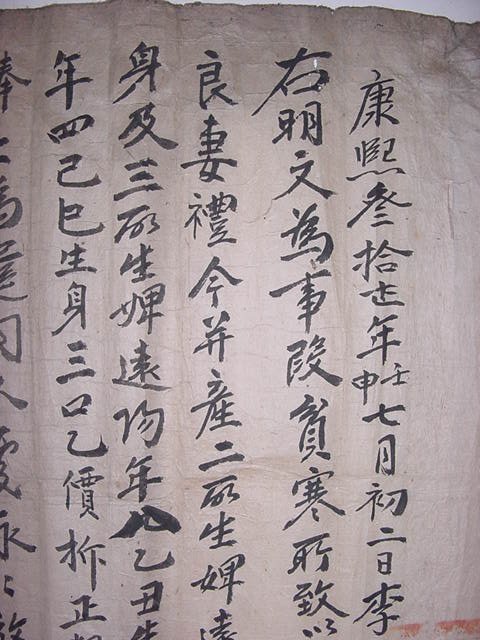 康熙叁拾壹年壬申七月初二日李
右明文為事段貧寒所致以
良妻禮今并産二所生婢遠
身及三所生婢遠陽年八乙丑生
年四己巳生身三口乙價折正租
捧上為遣同人處永〻放